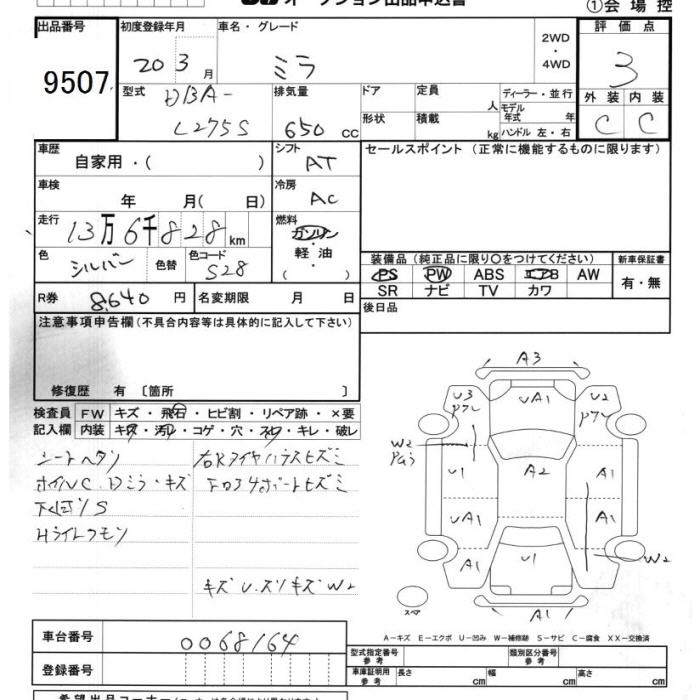 オークション出品申込書
①会場控
出品番号 初度登録年月 車名・グレード 2WD・4WD 評価点
9507 20 3月 ミラ 3
型式 DBA-L275S 排気量 650cc ドア 形状 定員 人 積載 kg ディーラー・並行 モデル年式 年 ハンドル 左・右 外装 C 内装 C
車歴 自家用・( ) シフト AT セールスポイント (正常に機能するものに限ります)
車検 年 月( 日) 冷房 AC
走行 13万6千828km 燃料 ガソリン・軽油・( )
色 シルバー 色替 色コード S28
装備品 (純正品に限り○をつけてください) 新車保証書
PS PW ABS エアB AW 有・無
SR ナビ TV カワ
R券 8,640円 名変期限 月 日 後日品
注意事項申告欄(不具合内容等は具体的に記入して下さい)
修復歴 有 〔箇所 〕
検査員 FW キズ・飛石・ヒビ割・リペア跡・×要
記入欄 内装 キズ・汚レ・コゲ・穴・スレ・キレ・破レ
シートヘタリ
ホイルC Dミラーキズ
下回リS
Hライトクモリ
キズ U.ズリキズ W2
A3
U3 UA1 U2
W2
U1 A2 A1
UA1 A1
A1 U1 A1 W2
スペア A1
A-キズ E-エクボ U-凹み W-補修跡 S-サビ C-腐食 XX-交換済
車台番号 0068164 型式指定番号 参考 類別区分番号 参考
登録番号 車庫証明用 参考 長さ cm 幅 cm 高さ cm